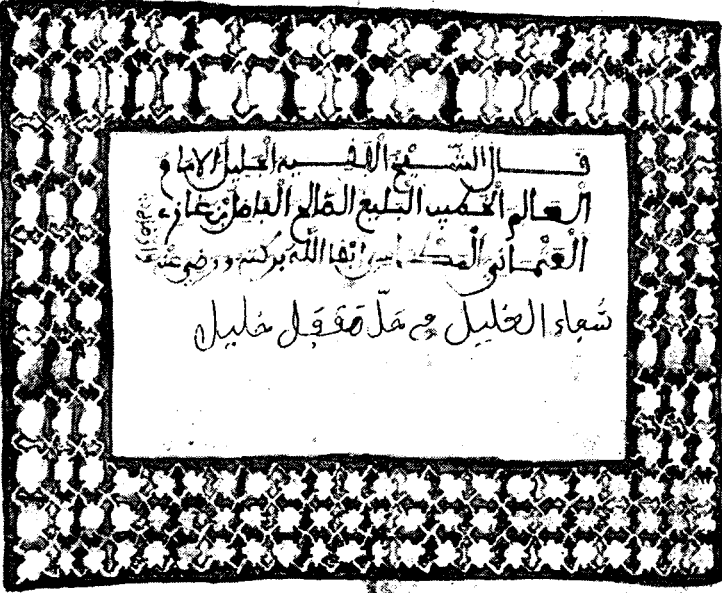 قال الشيخ الفقيه الجليل الامام
العالم العميد البليغ الصالح الفاضل بن غازي
العثماني المكناسي ابقا الله بركته ورضي عنه
شفاء الغليل في حل مقفل خليل